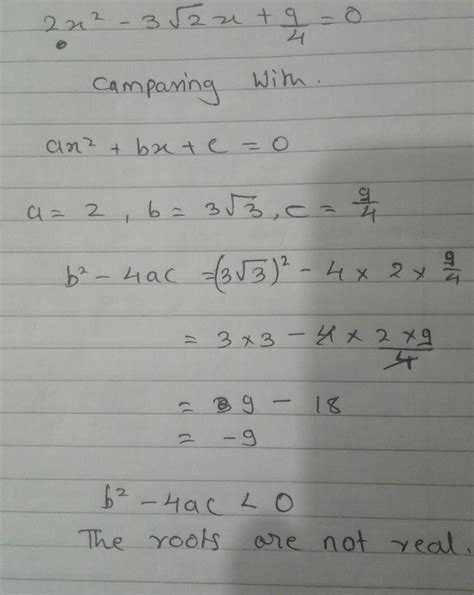 2x² - 3√2x + 9/4 = 0
Camparing With.
ax² + bx + c = 0
a = 2 , b = 3√3, c = 9/4
b² - 4ac = (3√3)² - 4 × 2 × 9/4
= 3 × 3 - 4 × 2 × 9/4
= 9 - 18
= -9
b² - 4ac < 0
The roots are not real.